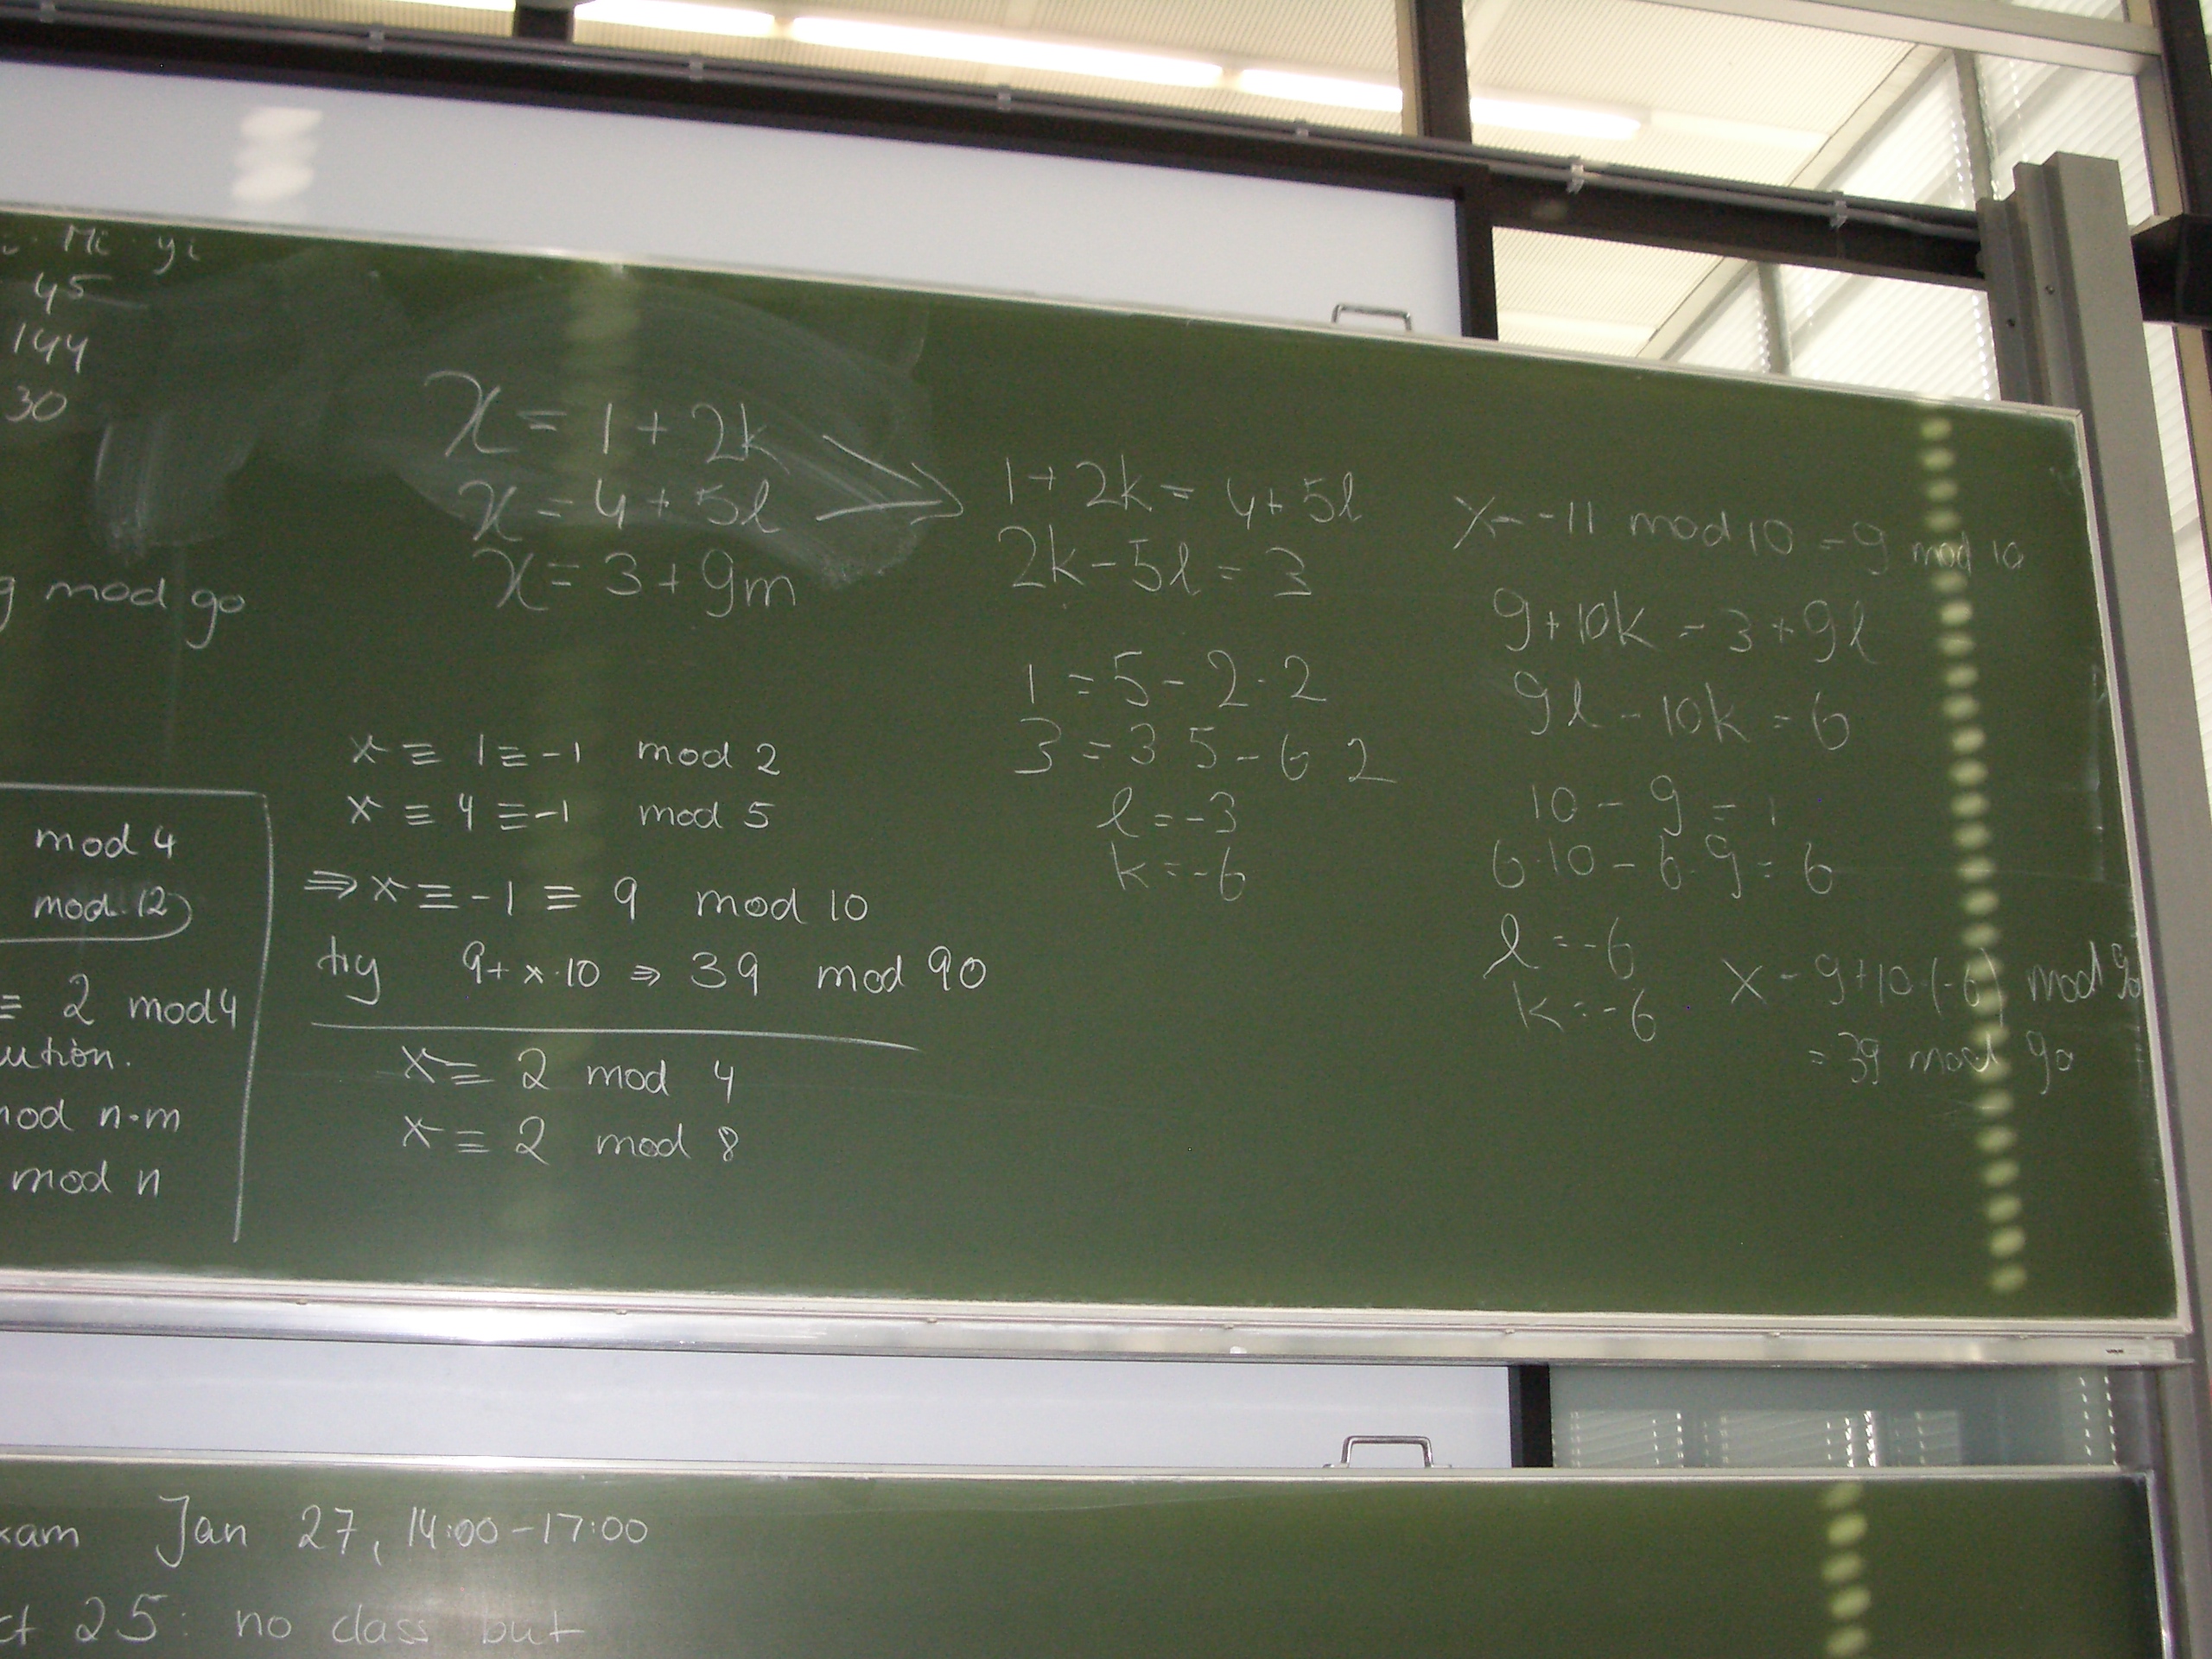 Mi · yi
45
144
30
g mod 90
mod 4
mod 12
≡ 2 mod 4
ution.
mod n·m
mod n
x = 1 + 2k
x = 4 + 5l
x = 3 + 9m
x ≡ 1 ≡ -1 mod 2
x ≡ 4 ≡ -1 mod 5
⇒ x ≡ -1 ≡ 9 mod 10
try 9 + x·10 ⇒ 39 mod 90
x ≡ 2 mod 4
x ≡ 2 mod 8
1 + 2k = 4 + 5l
2k - 5l = 3
1 = 5 - 2·2
3 = 3 5 - 6 2
l = -3
k = -6
x = -11 mod 10 = 9 mod 10
9 + 10k = 3 + 9l
9l - 10k = 6
10 - 9 = 1
6·10 - 6·9 = 6
l = -6
k = -6
x = 9 + 10·(-6) mod 90
= 39 mod 90
xam Jan 27, 14:00-17:00
ct 25: no class but